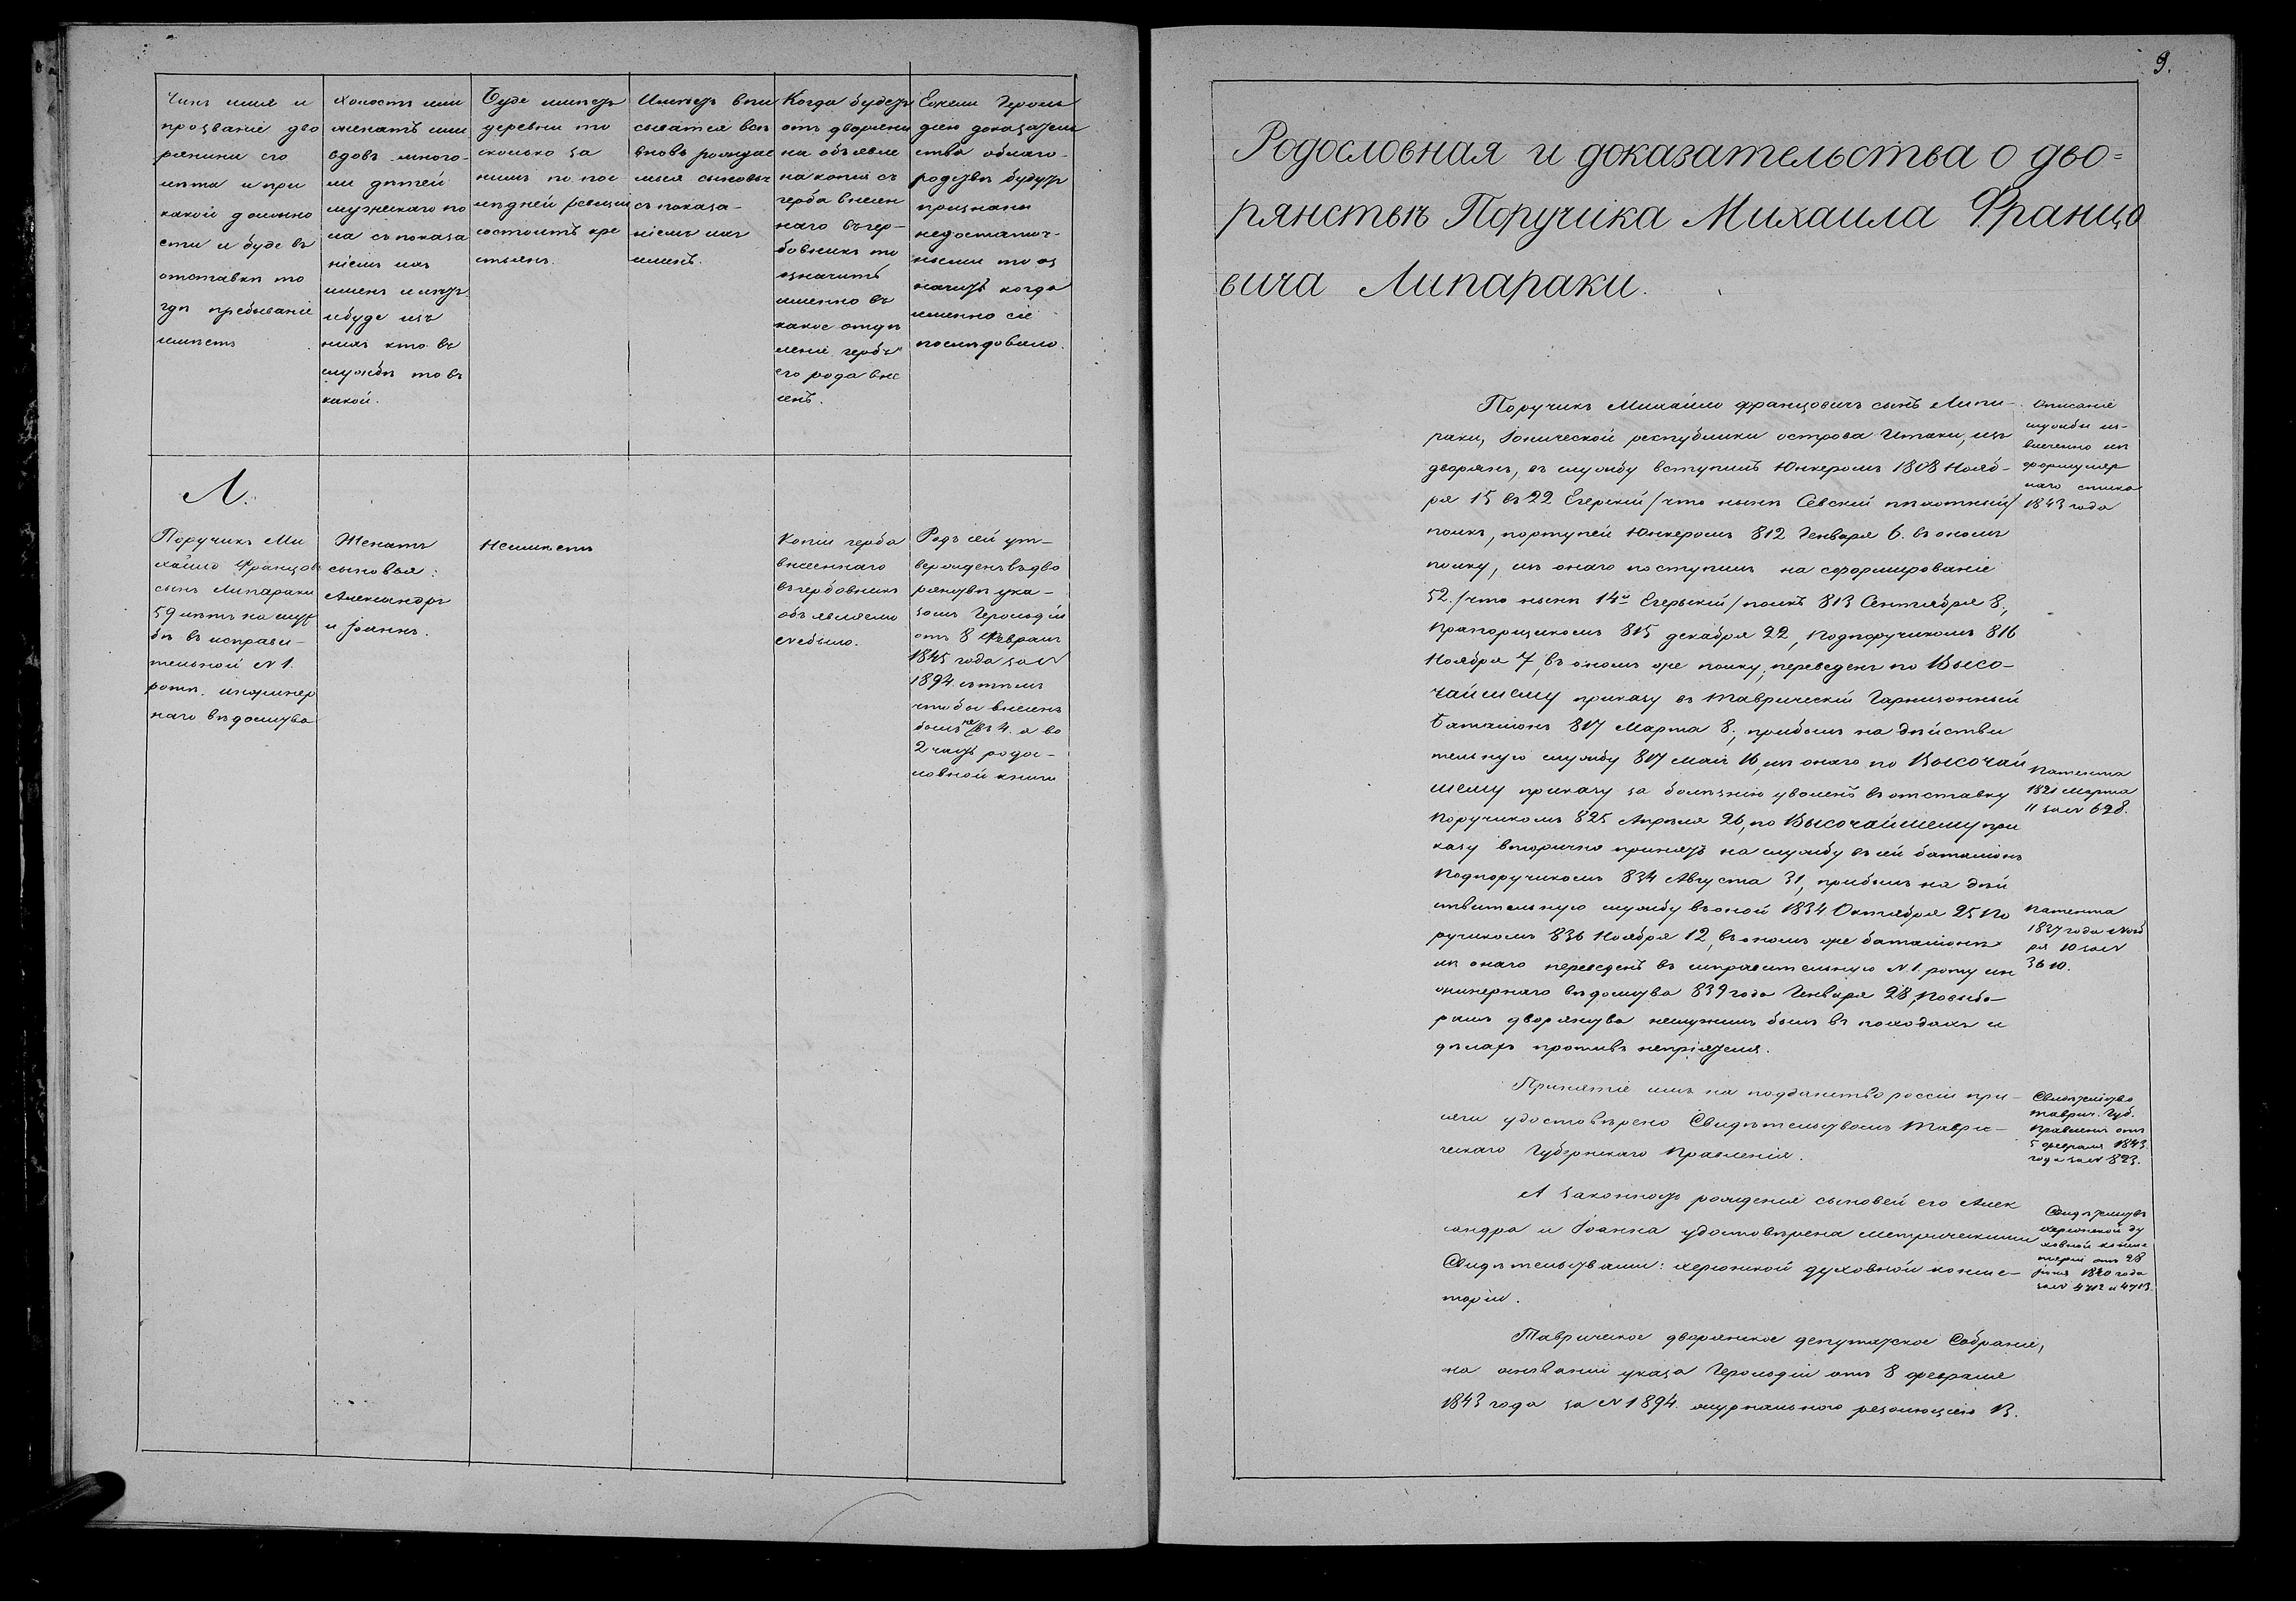 Чинъ имя и
прозваніе дво
рянина его
лета и при
какой должно
сти и буде въ
отставкѣ то
гдѣ пребываніе
имѣетъ
холостъ или
женатъ или
вдовъ много-
ли дѣтей
мужескаго по
ла съ показа
ніемъ ихъ
именъ и лѣтъ
и буде изъ
нихъ кто въ
службѣ то въ
какой.
Буде имѣетъ
деревни то
сколько за
нимъ по пос-
лѣдней ревизіи
состоитъ кре
стьянъ.
Имѣютъ впи
сыватся всѣ
вновь рождае
мыя сыновья
съ показа-
ніемъ ихъ
именъ.
Когда будетъ
отъ дворяни
на объявле
на копія съ
герба внесен
наго въ гер-
бовникъ то
означить
именно въ
какое отдѣ
леніе гербъ
его рода вне
сенъ.
Ежели Героль
діею доказатель
ства облаго-
родствѣ будутъ
признаны
недостаточ-
ными то оз
начить когда
именно сіе
послѣдовало.
Л.
Поручикъ Ми
хайло Францов
сынъ Липараки
59 лѣтъ на служ
бѣ въ исправи-
тельной №1.
ротѣ. инжинер
наго вѣдомства
Женатъ
сыновья:
Александръ
и Іоаннъ.
Неимѣетъ
Копіи герба
внесеннаго
въ гербовникъ
объявляемо
небыло.
Родъ сей ут-
вержденъ въ дво
рянствѣ ука-
зомъ Герольдіи
отъ 8 Февраля
1845 года за №
1894. съ тѣмъ
чтобы внесенъ
былъ не въ 4. а во
2 часть родос-
ловной книги
9.
Родословная и доказательства о дво=
рянствѣ Поручика Михаила Францо
вича Липараки.
Поручикъ Михайло Францовичъ сынъ Липа-
раки, Іонической республики острова Итаки, изъ
дворянъ, въ службу вступилъ Юнкеромъ 1808 Нояб-
ря 15 въ 22 Егерскій /что нынѣ Севскій пѣхотный/
полкъ, портупей Юнкеромъ 812 Генваря 6. въ ономъ
полку, изъ онаго поступилъ на сформированіе
52. /что нынѣ 14й Егерьскій/ полкъ 813 Сентября 8.,
Прапорщикомъ 815 декабря 22, Подпоручикомъ 816
Ноября 7, въ ономъ же полку, переведенъ по Высо-
чайшему приказу въ Таврическій Гарнизонный
баталіонъ 817 Марта 8., прибылъ на дѣйстви
тельную службу 817 Маія 16, изъ онаго по Высочай
шему приказу за болѣзнію уволенъ въ отставку
Поручикомъ 825 Апрѣля 26, по Высочайшему при
казу вторично принятъ на службу въ сей баталіонъ
Подпоручикомъ 834 Августа 31, прибылъ на дѣй
ствительную службу въ оной 1834 Октября 25 По
ручикомъ 836 Ноября 12, въ ономъ же баталіонѣ
изъ онаго переведенъ въ исправительную №1 роту ин
жинернаго вѣдомства 839 года Генваря 28, Повыбо-
рамъ дворянства неслужилъ былъ въ походахъ и
дѣлахъ противъ непріятеля.
Описаніе
службы из-
влечено изъ
формуляр
наго списка
1843 года
Патента
1821 Марта
11 за № 628.
Патента
1837 года Нояб
ря 10 за №
3610.
Принятіе имъ на подданство россіи при-
сяги удостовѣрено Свидѣтельствомъ Таври-
ческаго Губернскаго Правленія.
Свидѣтельство
таврич. Губ.
Правленія отъ
5 февраля 1843
года за № 823.
А законность рожденія сыновей его Алек
сандра и Іоанна удостовѣрена метрическими
Свидѣтельствами: херсонской духовной консис-
торіи.
Свидѣтельствъ
херсонской ду
ховной консис
торіи отъ 28
іюня 1840 года
за № 4712 и 4713.
Таврическое дворянское депутатское Собраніе,
на основаніи указа Герольдіи отъ 8 февраля
1843 года за № 1894. журнального резолюціею 13.